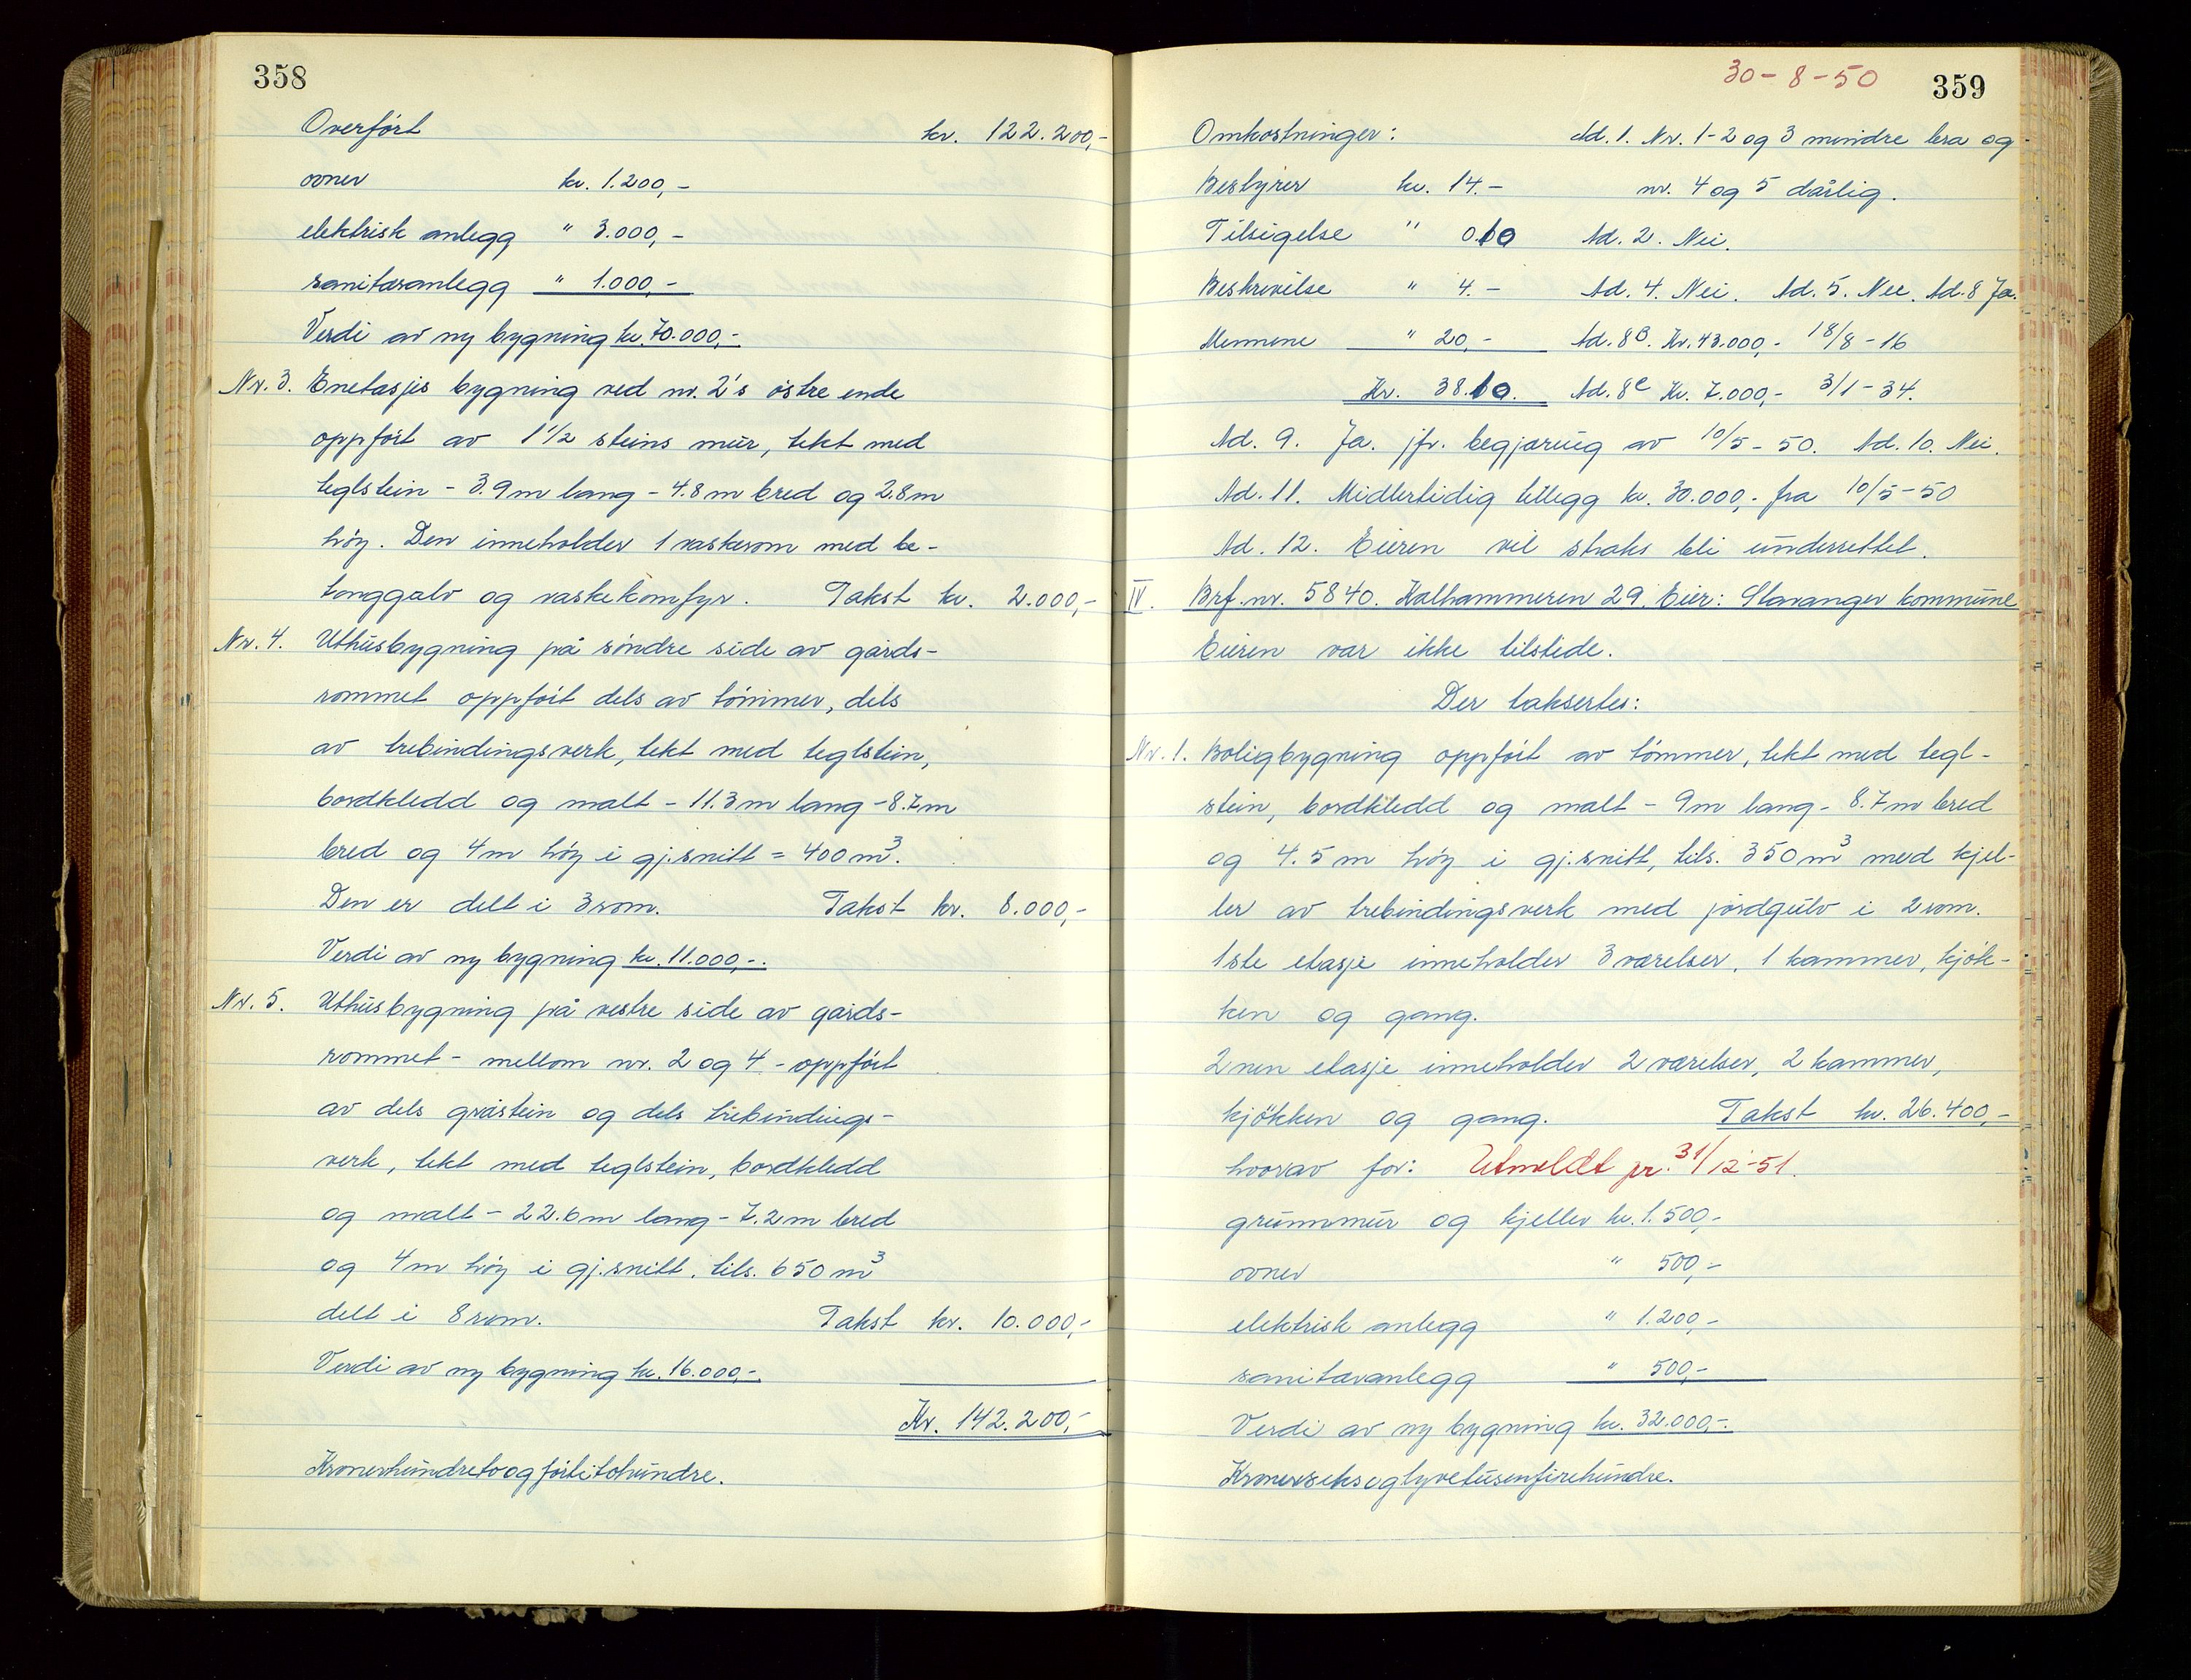 358
Overført kr. 122.200,-
ovner kr. 1.200,-
elektrisk anlegg " 3.000,-
sanitæranlegg " 1.000,-
Verdi av ny bygning kr. 70.000,-
Nr. 3. Enetasjes bygning ved nr. 2's östre ende
oppfört av 1 1/2 steins mur, tekt med
teglstein - 3.9 m lang - 4.8 m bred og 2.8 m
höy. Den inneholder 1 vaskerom med be-
tonggolv og vaskekomfyr. Takst kr. 2.000,-
Nr. 4. Uthusbygning på söndre side av gårds-
rommet oppfört dels av tömmer, dels
av trebindingsverk, tekt med teglstein,
bordkledd og malt - 11.3 m lang - 8.7 m
bred og 4 m höy i gj.snitt = 400 m³.
Den er delt i 3 rom. Takst kr. 8.000,-
Verdi av ny bygning kr. 11.000,-.
Nr. 5. Uthusbygning på vestre side av gårds-
rommet - mellom nr. 2 og 4 - oppfört
av dels gråstein og dels trebindings-
verk, tekt med teglstein, bordkledd
og malt - 22.6 m lang - 7.2 m bred
og 4 m höy i gj.snitt, tils. 650 m³
delt i 8 rom. Takst kr. 10.000,-
Verdi av ny bygning kr. 16.000,-.
Kr. 142.200,-
Kronerhundretoogförtitohundre.
30-8-50 359
Omkostninger: Ad. 1. Nr. 1-2 og 3 mindre bra og
Bestyrer kr. 14.- nr. 4 og 5 dårlig.
Tilsigelse " 0.60 Ad. 2. Nei.
Beskrivelse " 4.- Ad. 4. Nei. Ad. 5. Nei. Ad. 8 Ja.
Mennene " 20,- Ad. 8B. Kr. 43.000,- 18/8-16
Kr. 38.60. Ad. 8C Kr. 7.000,- 3/1-34.
Ad. 9. Ja. jfr. begjæring av 10/5-50. Ad. 10. Nei.
Ad. 11. Midlertidig tillegg kr. 30.000,- fra 10/5-50
Ad. 12. Eieren vil straks bli underrettet.
IV. Brf.nr. 5840. Kalhammeren 29. Eier: Stavanger kommune
Eieren var ikke tilstede.
Der taksertes:
Nr. 1. Boligbygning oppfört av tömmer, tekt med tegl-
stein, bordkledd og malt - 9 m lang - 8.7 m bred
og 4.5 m höy i gj.snitt, tils. 350 m³ med kjel-
ler av trebindingsverk med jordgulv i 2 rom.
1ste etasje inneholder 3 værelser, 1 kammer, kjök-
ken og gang.
2nen etasje inneholder 2 værelser, 2 kammer,
kjökken og gang. Takst kr. 26.400,-
hvorav for: Utmeldt pr. 31/12-51.
grunnmur og kjeller kr. 1.500,-
ovner " 500,-
elektrisk anlegg " 1.200,-
sanitæranlegg " 500,-
Verdi av ny bygning kr. 32.000,-.
Kronerseksogtyvetusenfirehundre.